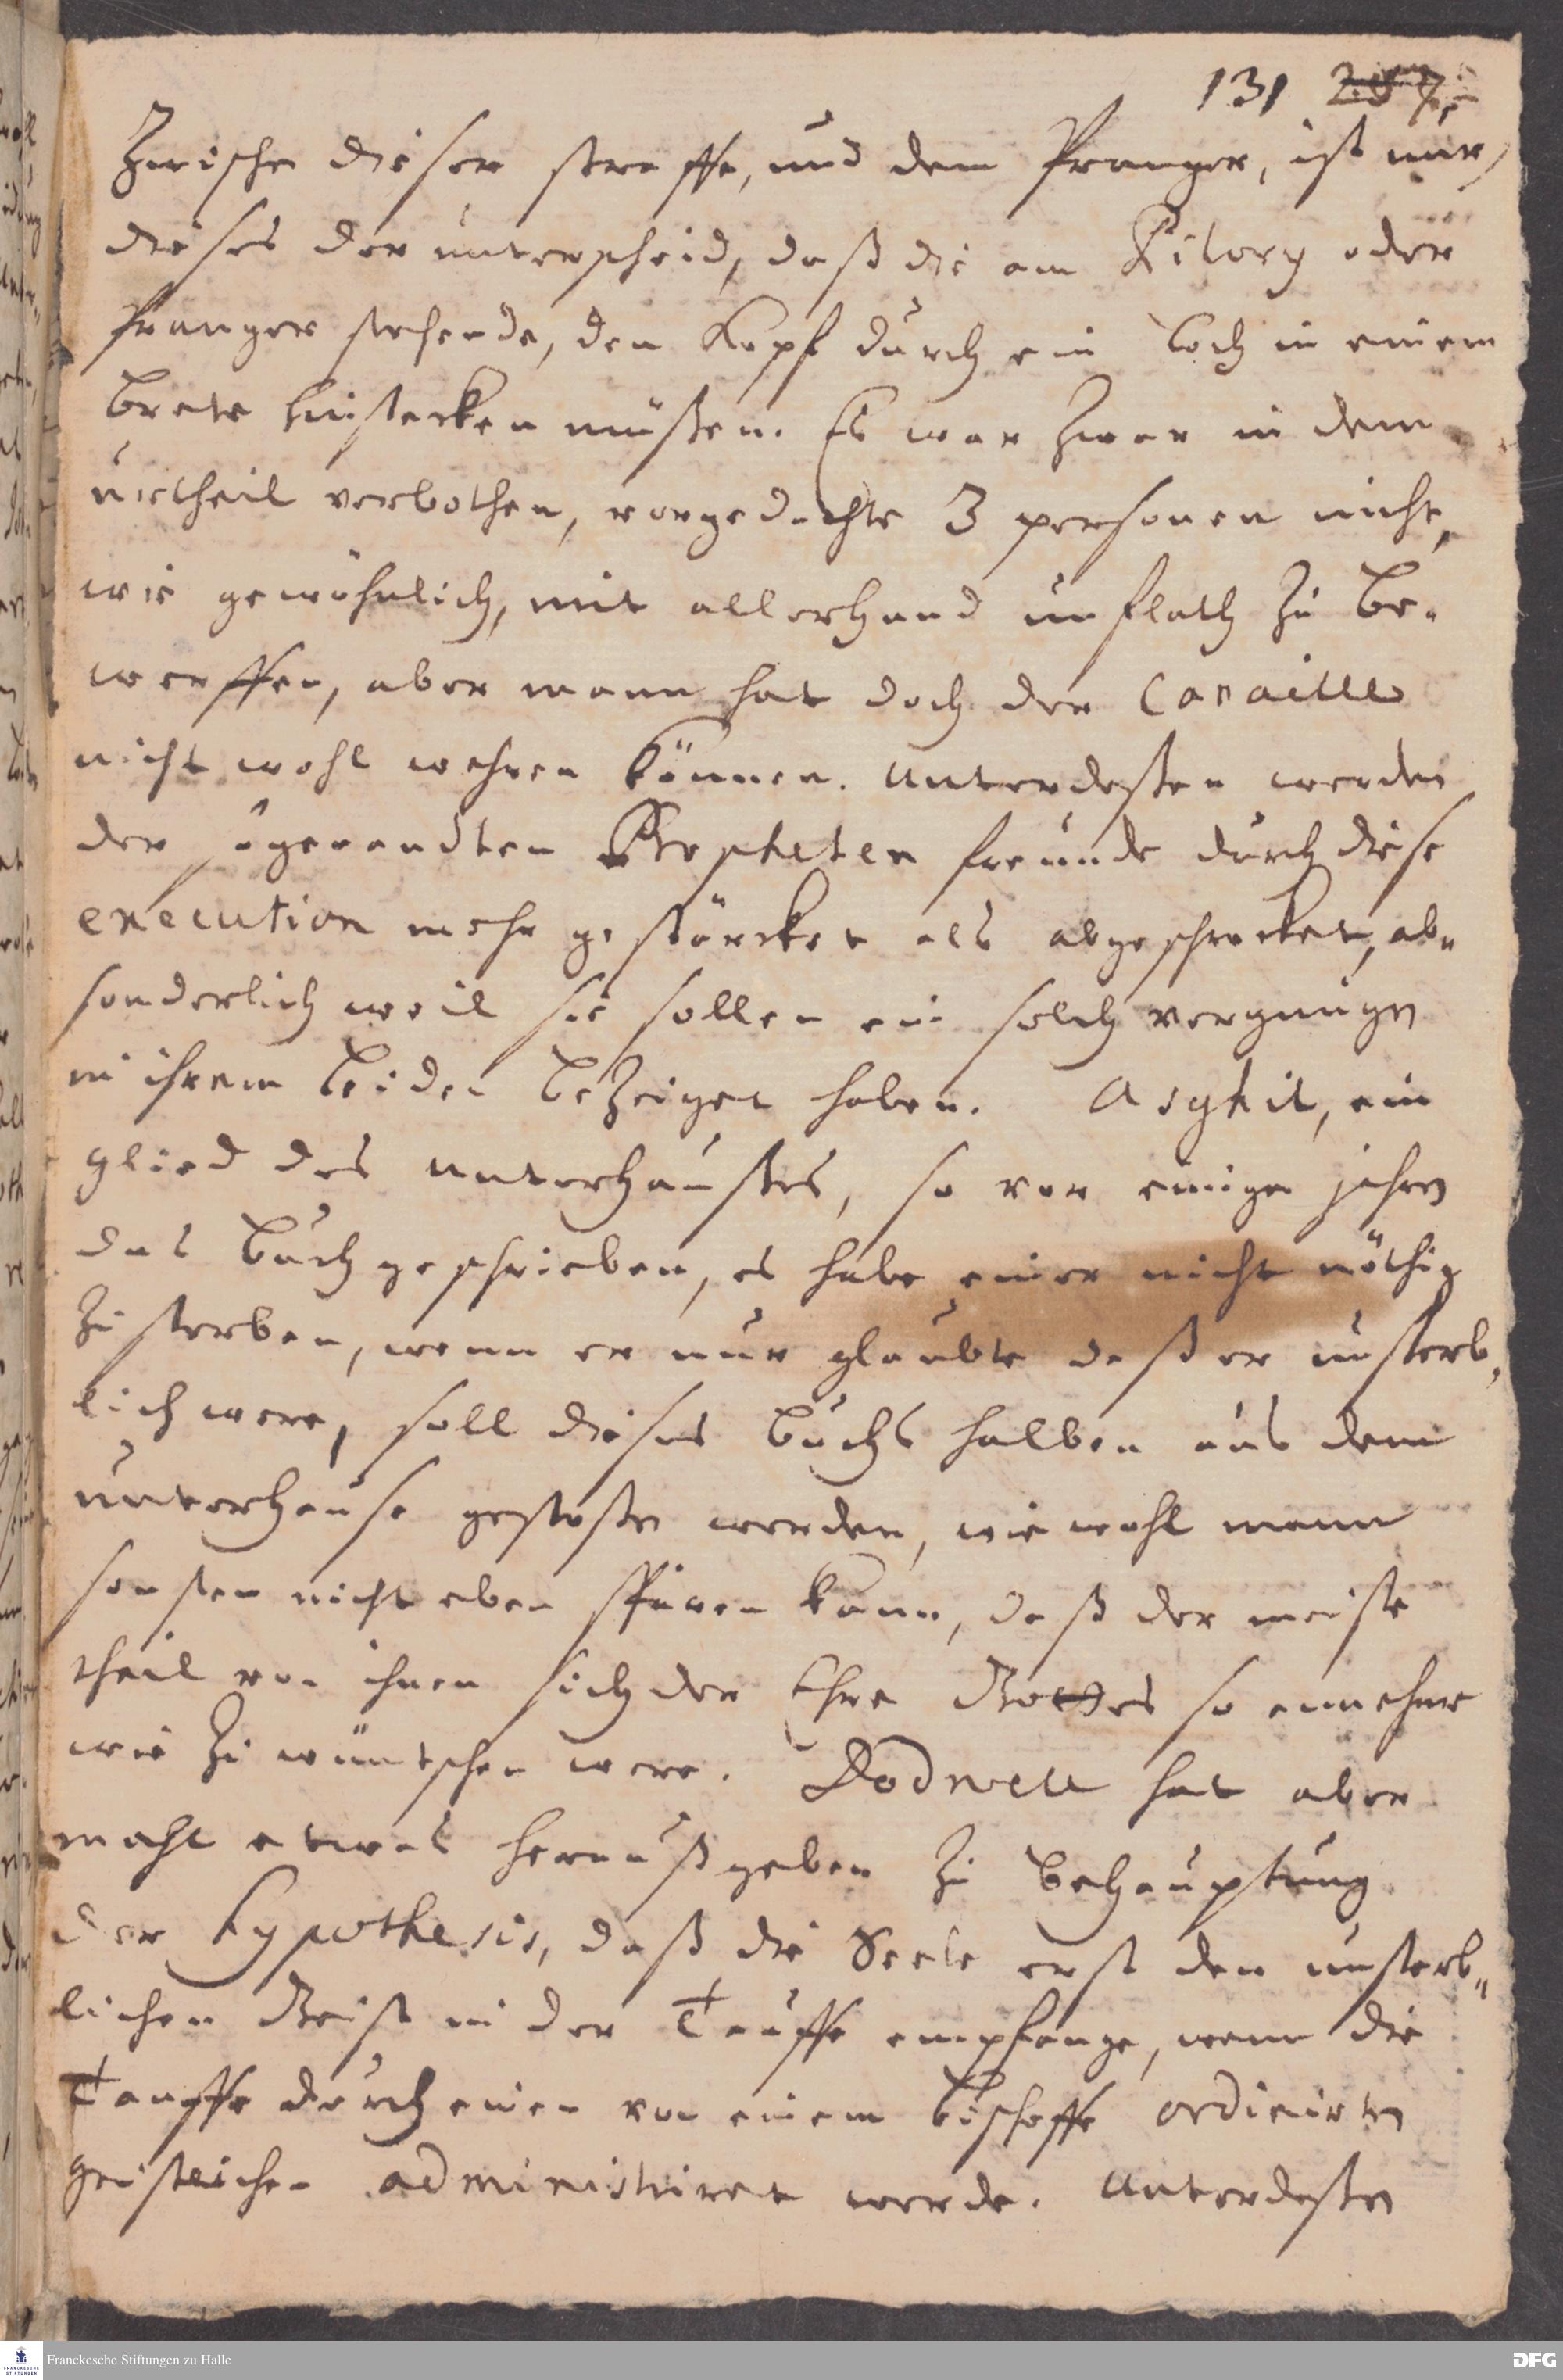 131 207.
Zwischen dieser straffe, und dem Pranger, ist nur
dieses der unterscheid, daß die am Pilory oder
Pranger stehende, den Kopf durch ein Loch in einem
Brete hinstecken müßen. Es war zwar in dem
urtheil verbothen, vorgedachte 3 personen nicht,
wie gewöhnlich, mit allerhand unflath zu be-
werffen, aber mann hat doch der Canaille
nicht wohl wehren können. Unterdeßen werden
der sogenandten Propheten freunde durch diese
execution mehr gestärcket als abgeschrecket, ab-
sonderlich weil sie sollen ein solch vergnügen
in ihrem Leiden bezeiget haben. Asghil, ein
glied des unterhauses, so vor einigen jahren
das Buch geschrieben, es habe einer nicht nöthig
zu sterben, wenn er nur glaubte daß er unsterb-
lich were, soll dieses Buchs halben aus dem
unterhause gestoßen werden, wie wohl mann
sonsten nicht eben spüren kann, daß der meiste
theil von ihnen sich der Ehre Gottes so annehme
wie zu wüntschen were. Dodwell hat aber
mahl etwas heraußgeben zu behauptung
der hypothesis, daß die Seele erst den unsterb-
lichen Geist in der Tauffe empfange, wenn die
Tauffe durch einen von einem Bischoffe ordinirten
geistlichen administriret werde. Unterdeßen
Franckesche Stiftungen zu Halle
DFG